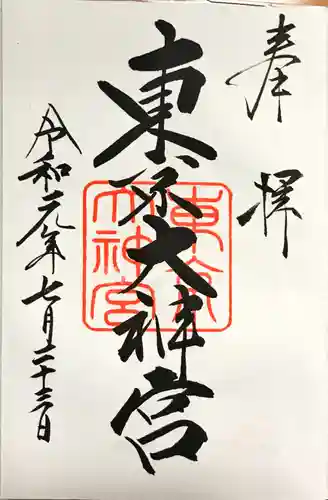 奉拝
東京大神宮
東京
大神宮
令和元年七月二十三日